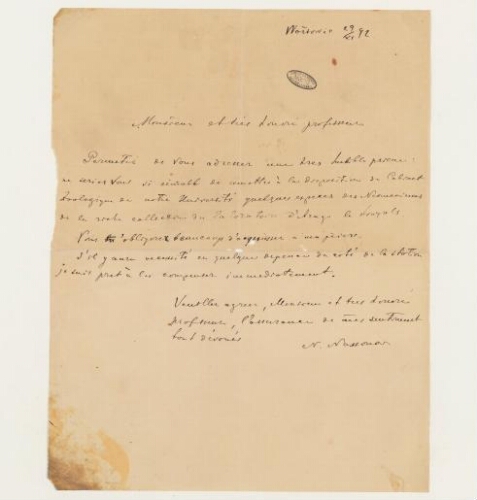 29/XI 92
Monsieur et très honoré professeur
Permettez de vous adresser une très humble prière:
ne seriez vous si aimable de remettre à la disposition du Cabinet
Zoologique de notre Université quelques espèces des
de la riche collection du Laboratoire
Vous m'obligerez beaucoup d'acquiescer a ma prière.
S'il y aura necessité en quelque depense du coté de la station
je suis pret à les compenser immediatement.
Veuillez agreer, Monsieur et tres honoré
Professeur, l'assurance de mes sentiment
tout dévoués
N. Nassonow